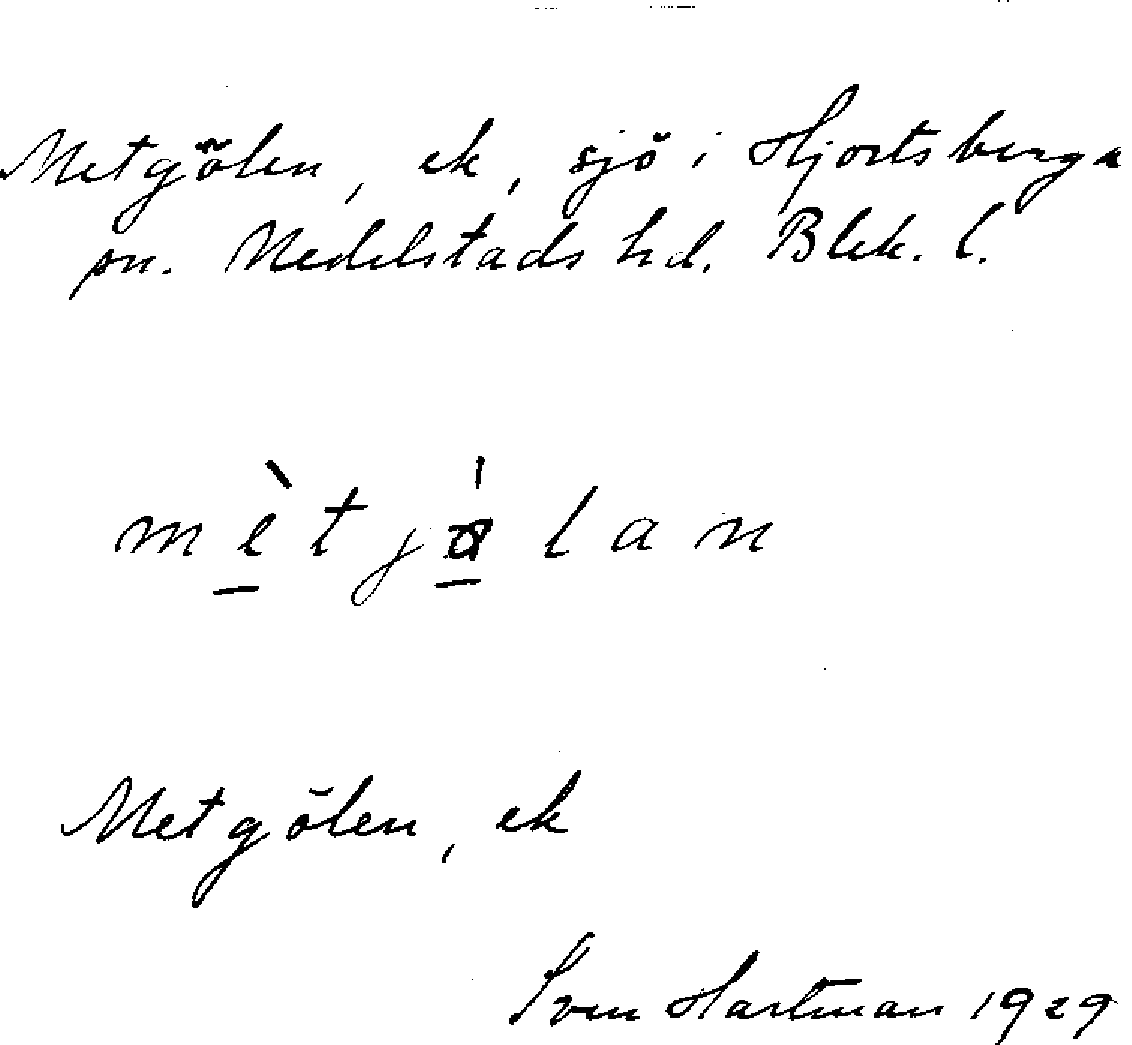 Metgölen, ek, sjö i Hjortsberga
sn. Medelstads hd. Blek. l.
mètjǿlan
Metgölen, ek
Sven Hartman 1929